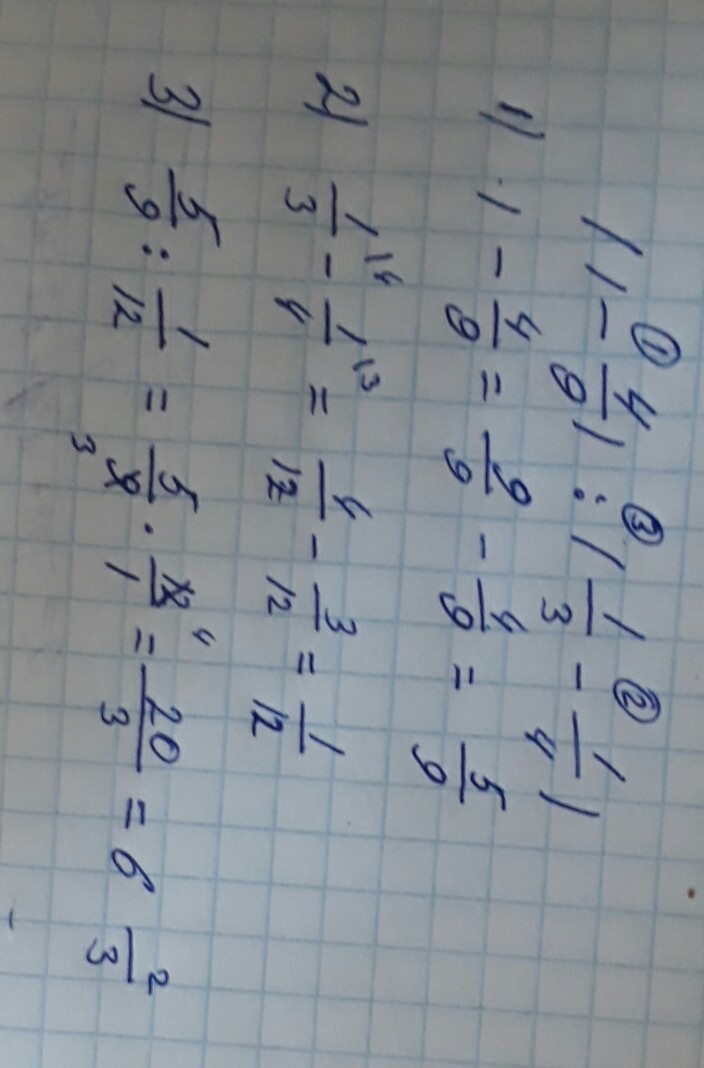 ① ③ ②
(1 - 4/9) : (1/3 - 1/4)
1) 1 - 4/9 = 9/9 - 4/9 = 5/9
2) 1/3 \4 - 1/4 \3 = 4/12 - 3/12 = 1/12
3) 5/9 : 1/12 = 5/9 3 · 12/1 4 = 20/3 = 6 2/3